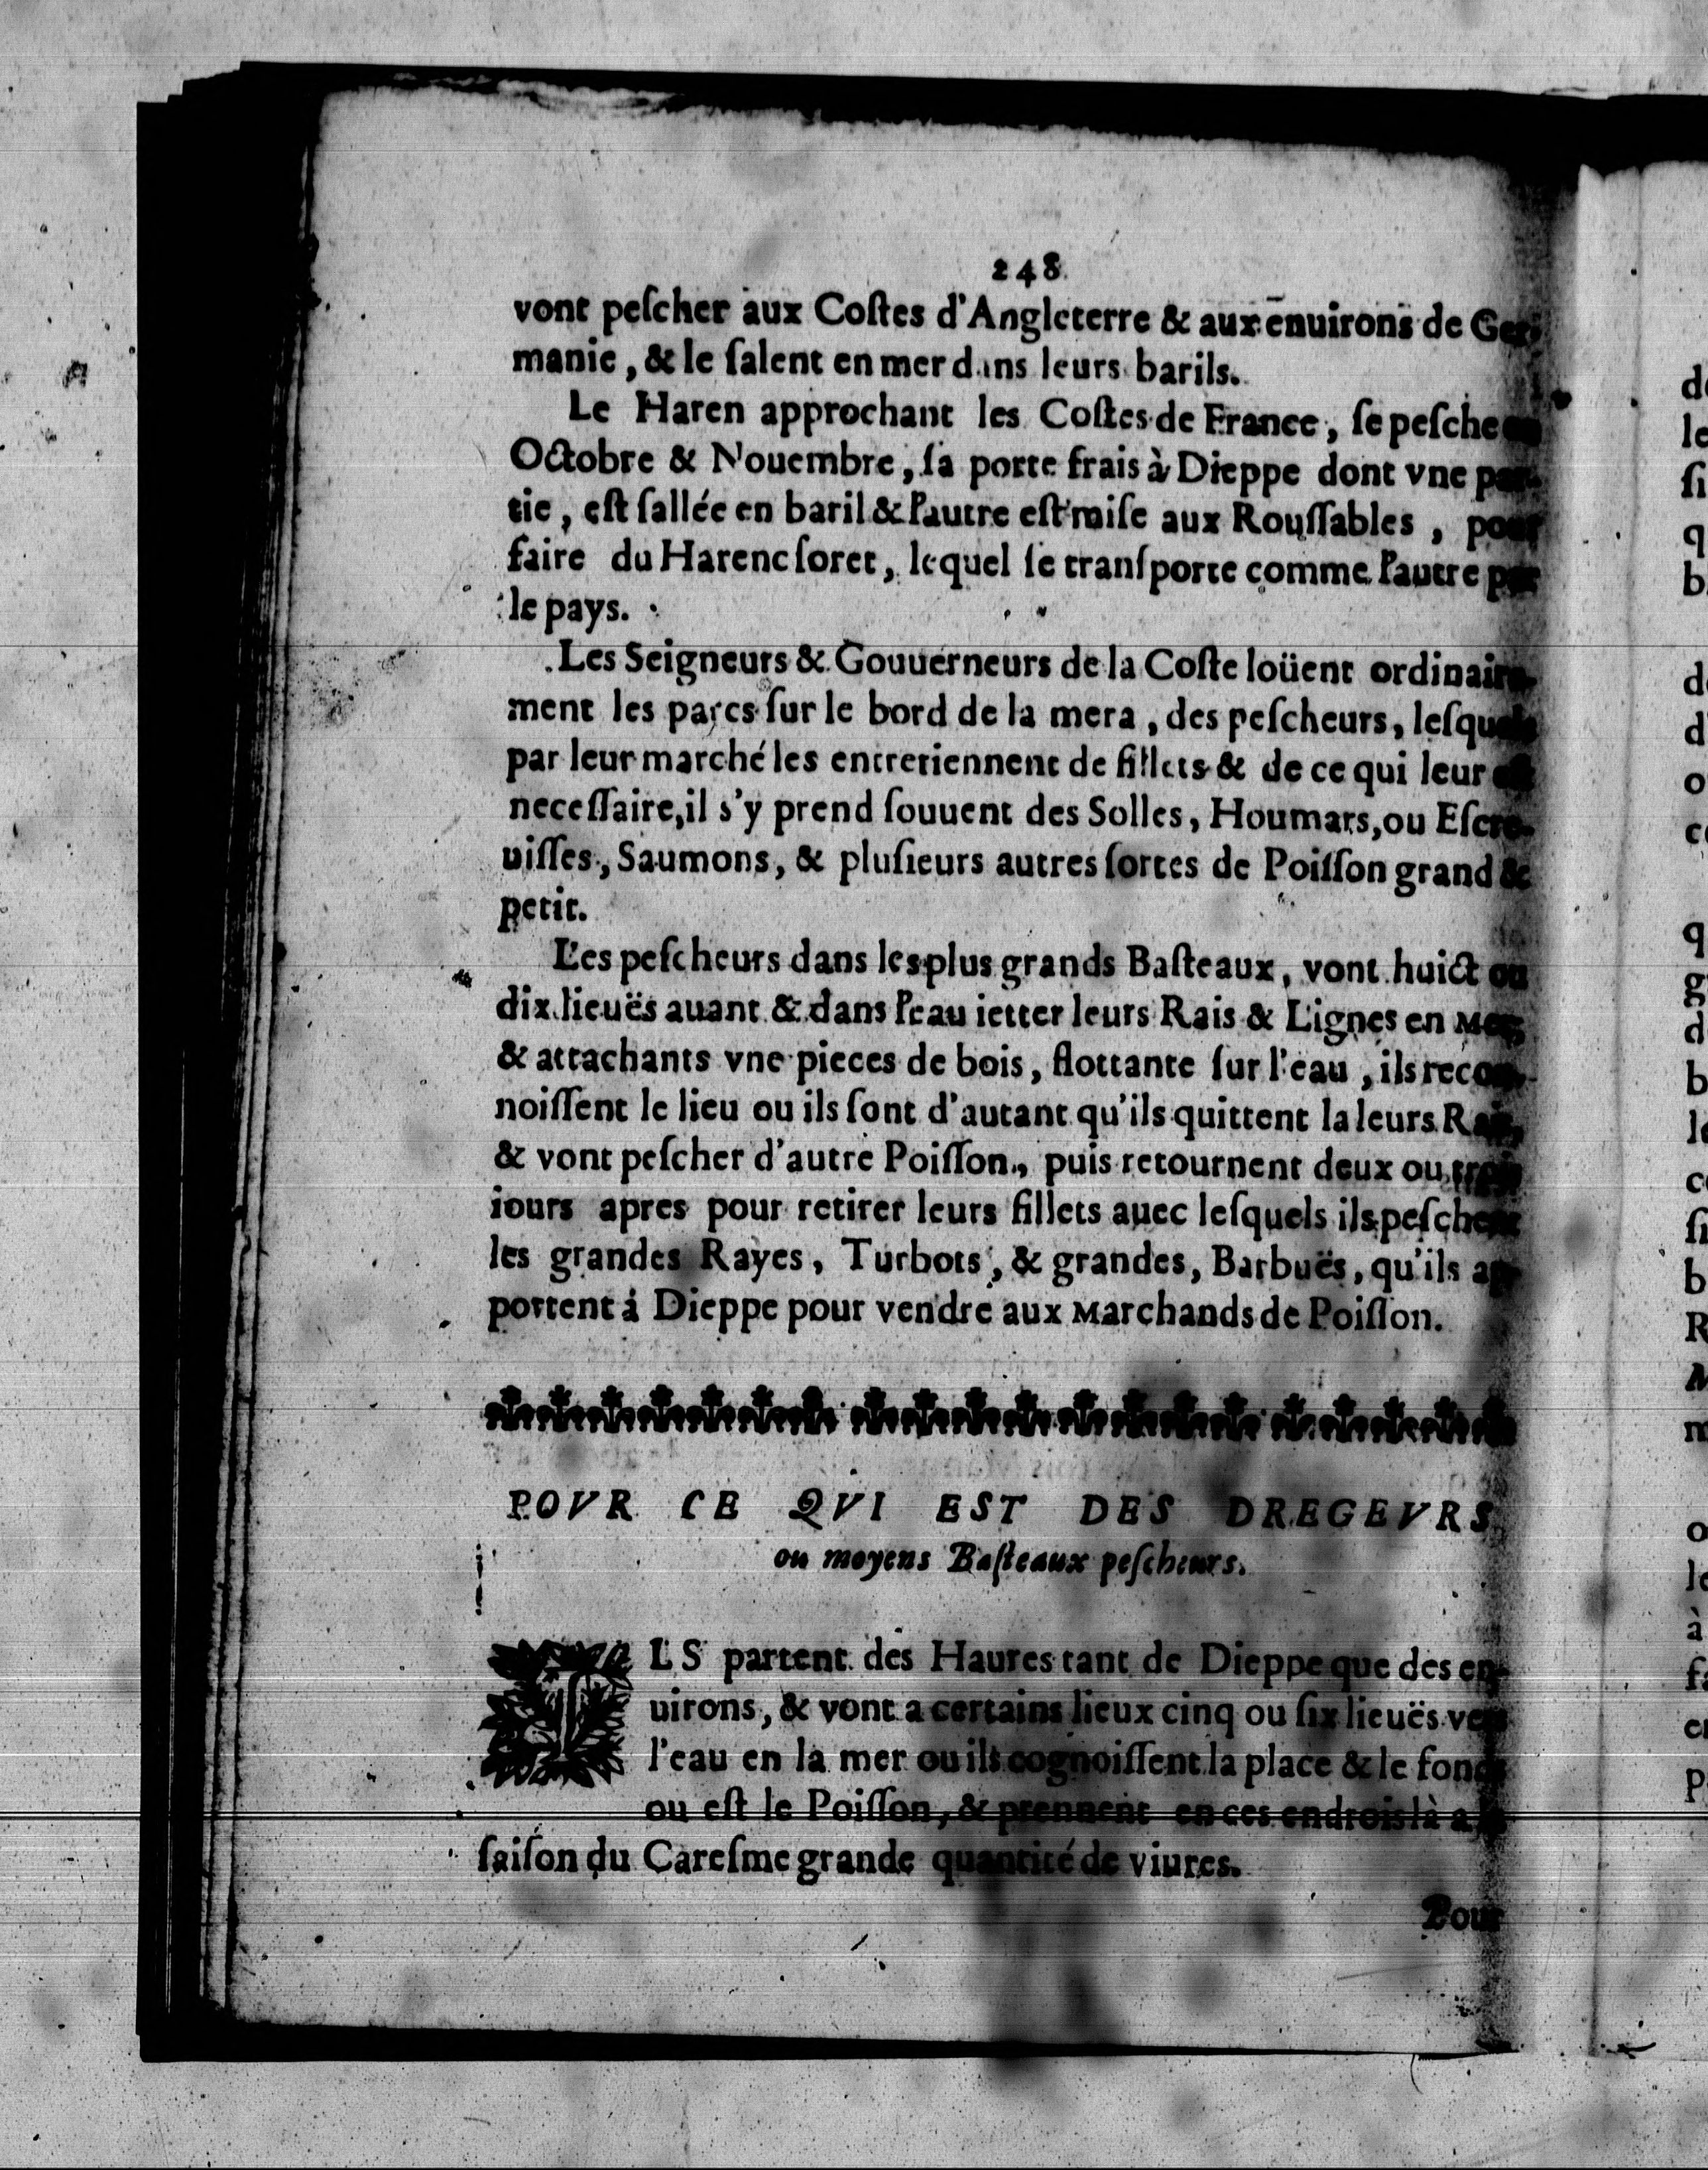 248
vont peſcher aux Coſtes d'Angleterre & aux enuirons de Ger-
manie, & le ſalent en mer dans leurs barils.
Le Haren approchant les Coſtes de France, ſe peſche en
Octobre & Nouembre, ſa porte frais à Dieppe dont vne par-
tie, eſt ſallée en baril & l'autre eſt miſe aux Rouſſables, pour
faire du Harenc ſoret, lequel ſe tranſporte comme l'autre par
le pays.
Les Seigneurs & Gouuerneurs de la Coſte loüent ordinaire-
ment les parcs ſur le bord de la mera, des peſcheurs, leſquels
par leur marché les entretiennent de fillets & de ce qui leur
neceſſaire, il s'y prend ſouuent des Solles, Houmars, ou Eſcre-
uiſſes, Saumons, & pluſieurs autres ſortes de Poiſſon grand &
petit.
Les peſcheurs dans les plus grands Baſteaux, vont huict ou
dix lieuës auant & dans l'eau ietter leurs Rais & Lignes en Mer,
& attachants vne pieces de bois, flottante ſur l'eau, ils recon-
noiſſent le lieu ou ils ſont d'autant qu'ils quittent la leurs Rais,
& vont peſcher d'autre Poiſſon, puis retournent deux ou trois
iours apres pour retirer leurs fillets auec leſquels ils peſchent
les grandes Rayes, Turbots, & grandes, Barbuës, qu'ils ap-
portent á Dieppe pour vendre aux Marchands de Poiſſon.
POVR CE QVI EST DES DREGEVRS
ou moyens Baſteaux peſcheurs.
ILS partent des Haures tant de Dieppe que des en-
uirons, & vont a certains lieux cinq ou ſix lieuës vers
l'eau en la mer ou ils cognoiſſent la place & le fonds
ou eſt le Poiſſon, & prennent en ces endrois là a la
ſaiſon du Careſme grande quantité de viures.
Pour